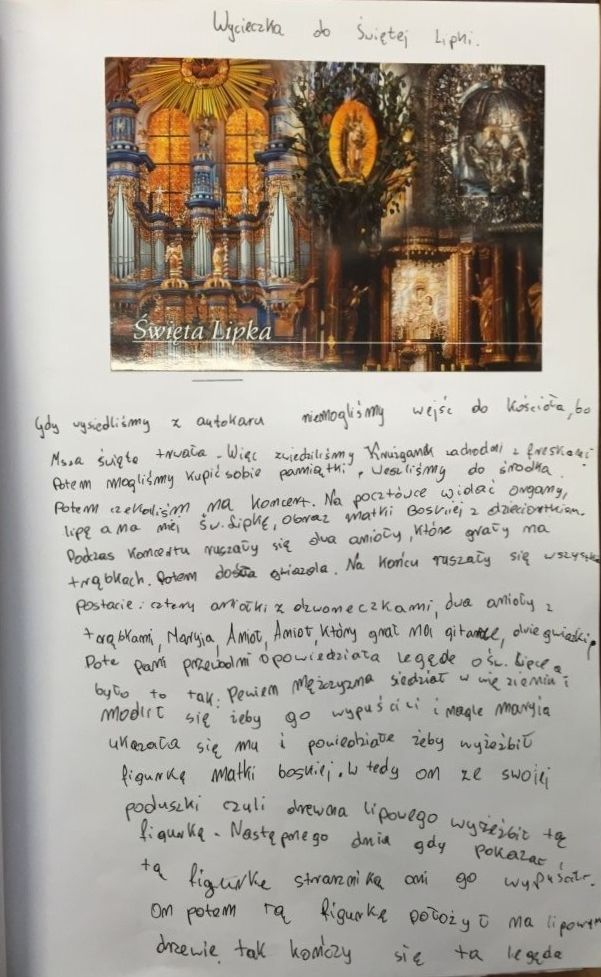 Wycieczka do Świętej Lipki.
Święta Lipka
Gdy wysiedliśmy z autokaru niemogliśmy wejść do kościoła, bo
Msza święta trwała. Więc zwiedziliśmy Krużganek zachodni z freskami
Potem mogliśmy kupić sobie pamiątki. Weszliśmy do środka.
Potem czekaliśm na koncert. Na pocztówce widać organy,
lipę a na niej św. Lipkę, obraz matki Boskiej z dzieciątkiem.
Podczas koncertu ruszały się dwa anioły, które grały na
trąbkach. Potem doszła gwiazda. Na końcu ruszały się wszystkie
postacie: cztery aniołki z dzwoneczkami, dwa anioły z
trąbkami, Maryja, Anioł, Anioł, który grał na gitarze, dwie gwiazdki
Pote pani przewodni opowiedziała legędę o św. Lipce a
było to tak: Pewien mężczyzna siedział w więzieniu i
modlił się żeby go wypuścili i nagle maryja
ukazała się mu i powiedziała żeby wyżeźbił
figurkę matki boskiej. W tedy on ze swojej
poduszki czyli drewna lipowego wyżeźbił tą
figurkę. Następnego dnia gdy pokazał
tą figurkę strażniką oni go wypuścili.
On potem tą figurkę położył na lipowym
drzewie tak kończy się ta legęda